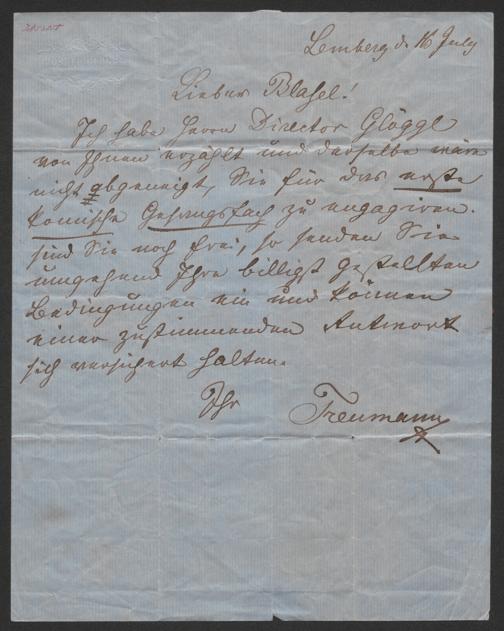 Lemberg d. 16 July
Lieber Blasel!
Ich habe Herrn Director Glöggl
von Ihnen erzählt und derselbe wäre
nicht abgeneigt, Sie für das erste
komische Gesangsfach zu engagiren.
sind Sie noch frei, so senden Sie
umgehend Ihre billigst gestellten
Bedingungen ein und können
einer zustimmenden Antwort
sich versichert halten.
Ihr Treumann